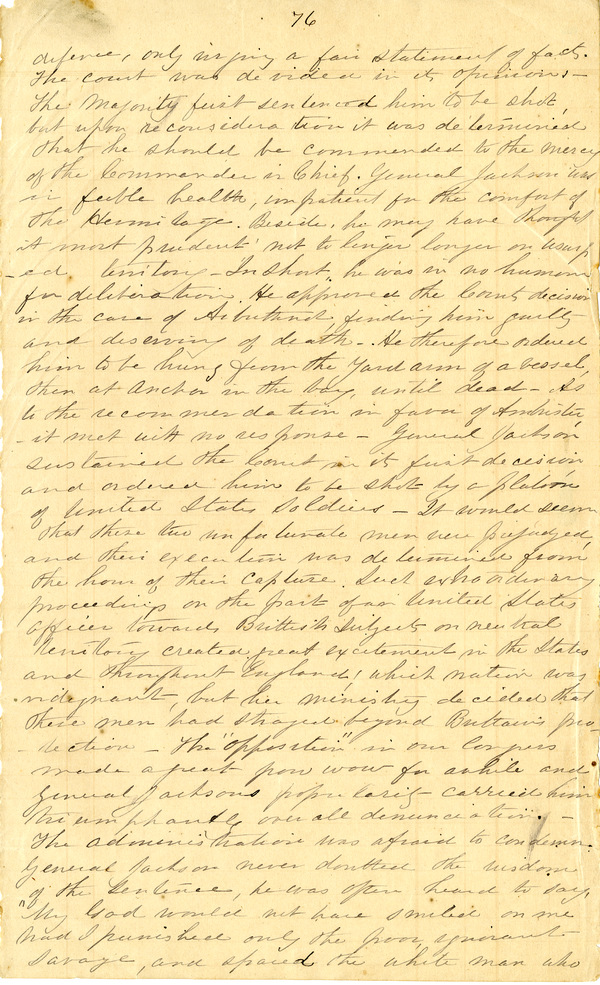 76
defence, only urging a fair statement of facts.
The court was devided in its opinion; -
The Majority first sentenced him to be shot,
but upon reconsideration it was determined
that he should be commended to the mercy
of the Commander in Chief. General Jackson was
in feeble health, impatient for the comfort of
the Hermitage. Beside, he may have thought
it most prudent not to linger longer on usurp
-ed territory - In short, he was in no humor
for deliberation. He approved the Courts decision
in the case of Arbuthnot, finding him guilty
and deserving of death - He therefore ordered
him to be hung from the Yard arm of a vessel,
then at Anchor in the bay, until dead - As
to the recommendation in favor of Ambrister,
- it met with no response - General Jackson
sustained the Court in its first decision
and ordered him to be shot by a platoon
of United States Soldiers - It would seem
that these two unfortunate men were prejudged,
and their execution was determined from
the hour of their capture. Such extraordinary
proceedings on the part of a United States
officer towards Brittish subjects on neutral
territory created great excitement in the States
and throughout England! which nation was
indignant, but her ministry decided that
these men had strayed beyond Brittain's pro-
-tection - The "Opposition" in our Congress
made a great pow wow for awhile and
General Jacksons popularity carried him
triumphantly over all denunciation. -
The administration was afraid to condemn.
General Jackson never doubted the wisdom
of the sentence, he was often heard to say,
"My God would not have smiled on me
had I punished only the poor, ignorant
savage, and spared the white man who